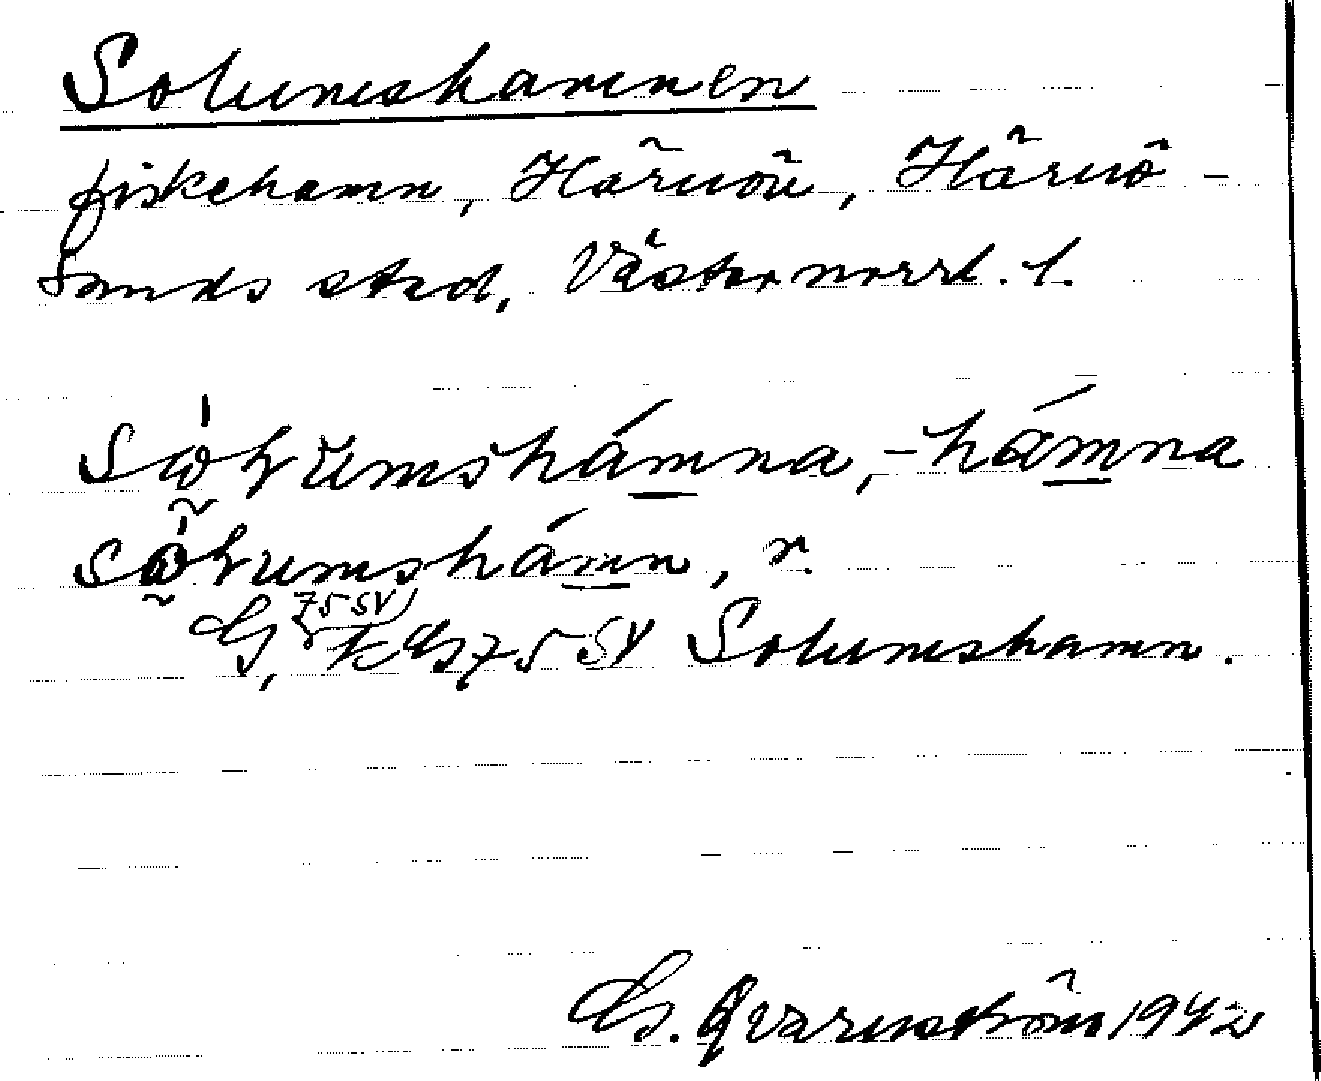 Solumshamnen
fiskehamn, Härnön, Härnö-
sands stad, Västernorrl. l.
-hámna
r.
75 SV
G, k G 75 SV Solumshamn.
G. Qvarnström 1942